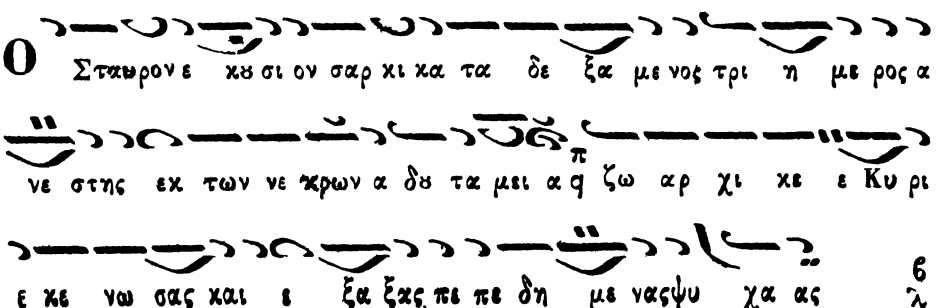 Ο Σταυρον ε κȣ σι ον σαρ κι κα τα δε ξα με νος τρι η με ρος α
νε στης εκ των νε κρων α δȣ τα μει α q π ζω αρ χι κε ε Κυ ρι
ε κε νω σας και ε ξα ξας πε πε δη με νας ψυ χα ας